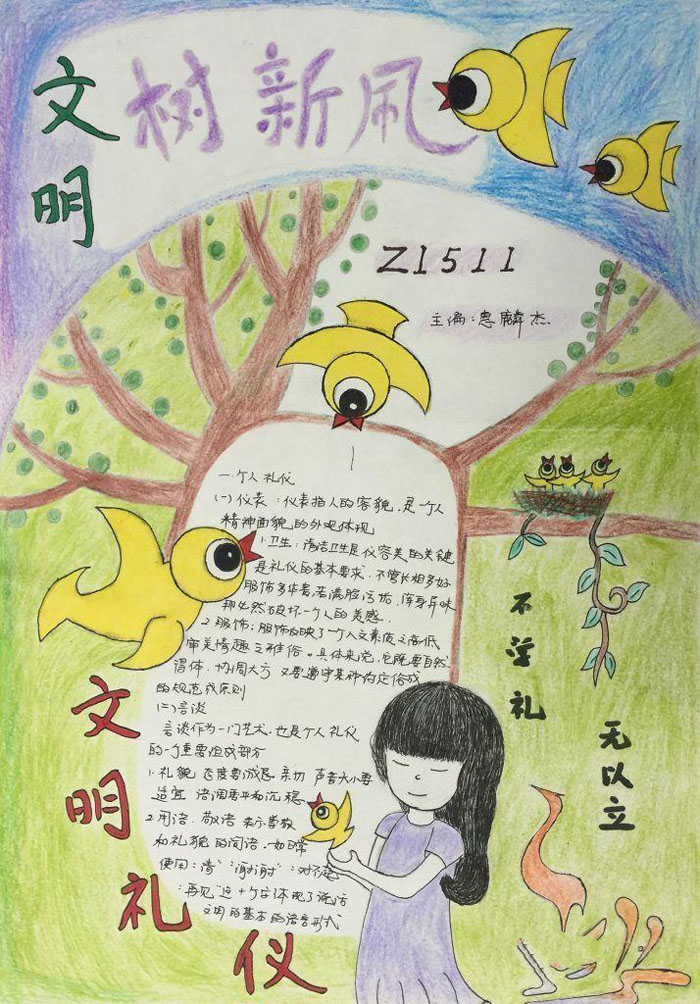 文明
树新风
Z1511
主编：恩麟杰
一个人礼仪
(一)仪表：仪表指人的容貌，是一个人
精神面貌的外观体现
1.卫生：清洁卫生是仪容美的关键
是礼仪的基本要求。不管长相多好
服饰多华贵，若满脸污垢，浑身异味
那必然破坏一个人的美感.
2.服饰：服饰反映了一个人文素质之高低
审美情趣之雅俗。具体来说，它既要自然
得体，协调大方，又要遵守某种约定俗成
的规范或原则
(二)言谈
言谈作为一门艺术，也是个人礼仪
的一个重要组成部分
1.礼貌 态度要诚恳 亲切 声音大小要
适宜 语调要平和沉稳
2.用语：敬语 表示尊敬
和礼貌的词语.如日常
使用：“请”“谢谢”“对不起”
“再见”这十个字体现了说话
文明的基本的语言形式
不学礼
无以立
文明礼仪